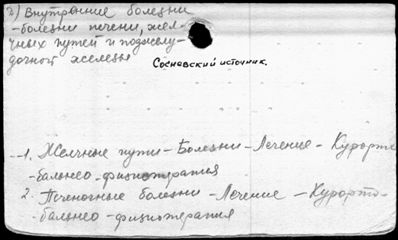 2) Внутренние болезни
-болезни печени, жел-
чных путей и поджелу-
дочной железы
Сосновский источник.
1. Желчные пути - Болезни - Лечение - Курорто
-бальнео-физиотерапия
2. Печеночные болезни - Лечение - Курорто-
-бальнео-физиотерапия